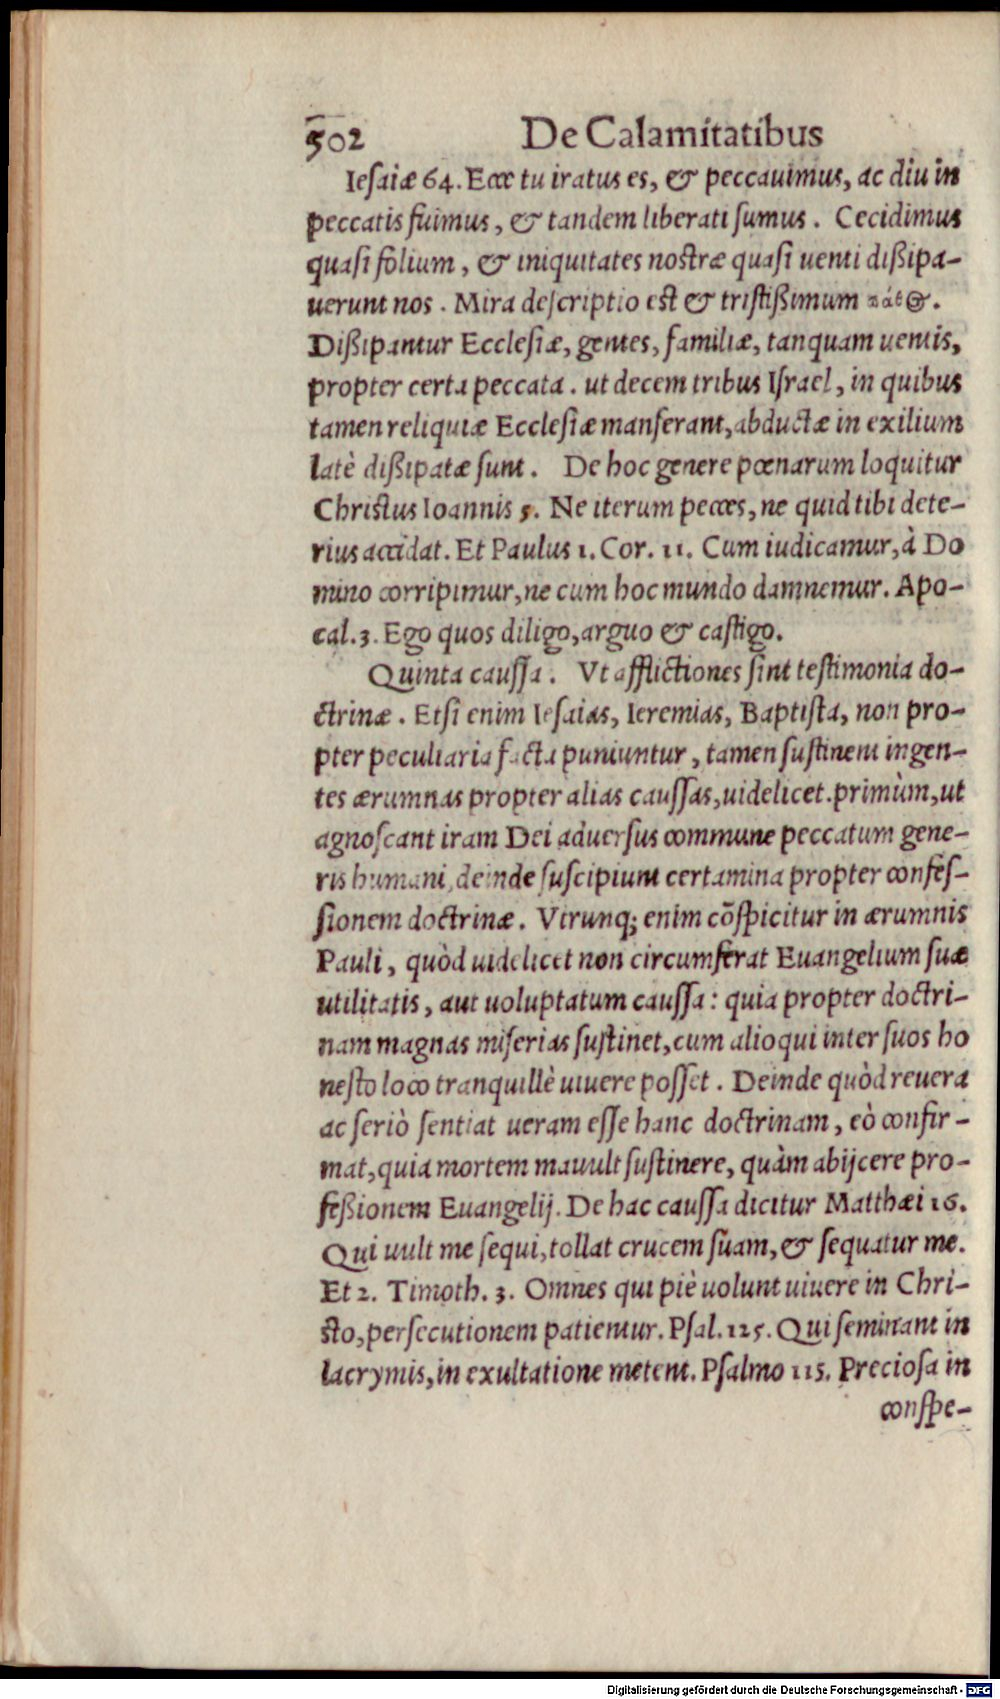 502 De Calamitatibus
Iesaiæ 64. Ecce tu iratus es, & peccauimus, ac diu in
peccatis fuimus, & tandem liberati sumus. Cecidimus
quasi folium, & iniquitates nostræ quasi uenti dißipa-
uerunt nos. Mira descriptio est & tristißimum
Dißipantur Ecclesiæ, gentes, familiæ, tanquam uentis,
propter certa peccata. ut decem tribus Israel, in quibus
tamen reliquiæ Ecclesiæ manserant, abductæ in exilium
latè dißipatæ sunt. De hoc genere pœnarum loquitur
Christus Ioannis 5. Ne iterum pecces, ne quid tibi dete-
rius accidat. Et Paulus 1. Cor. 11. Cum iudicamur, à Do
mino corripimur, ne cum hoc mundo damnemur. Apo-
cal. 3. Ego quos diligo, arguo & castigo.
Quinta caussa. Vt afflictiones sint testimonia do-
ctrinæ. Etsi enim Iesaias, Ieremias, Baptista, non pro-
pter peculiaria facta puniuntur, tamen sustinent ingen-
tes ærumnas propter alias caussas, uidelicet. primùm, ut
agnoscant iram Dei aduersus commune peccatum gene-
ris humani, deinde suscipiunt certamina propter confes-
sionem doctrinæ. Vtrunq; enim cõspicitur in ærumnis
Pauli, quòd uidelicet non circumferat Euangelium suæ
utilitatis, aut uoluptatum caussa: quia propter doctri-
nam magnas miserias sustinet, cum alioqui inter suos ho
nesto loco tranquillè uiuere posset. Deinde quòd reuera
ac seriò sentiat ueram esse hanc doctrinam, eò confir-
mat, quia mortem mauult sustinere, quàm abijcere pro-
feßionem Euangelij. De hac caussa dicitur Matthæi 16.
Qui uult me sequi, tollat crucem suam, & sequatur me.
Et 2. Timoth. 3. Omnes qui piè uolunt uiuere in Chri-
sto, persecutionem patientur. Psal. 125. Qui seminant in
lacrymis, in exultatione metent. Psalmo 115. Preciosa in
conspe-
Digitalisierung gefördert durch die Deutsche Forschungsgemeinschaft - DFG